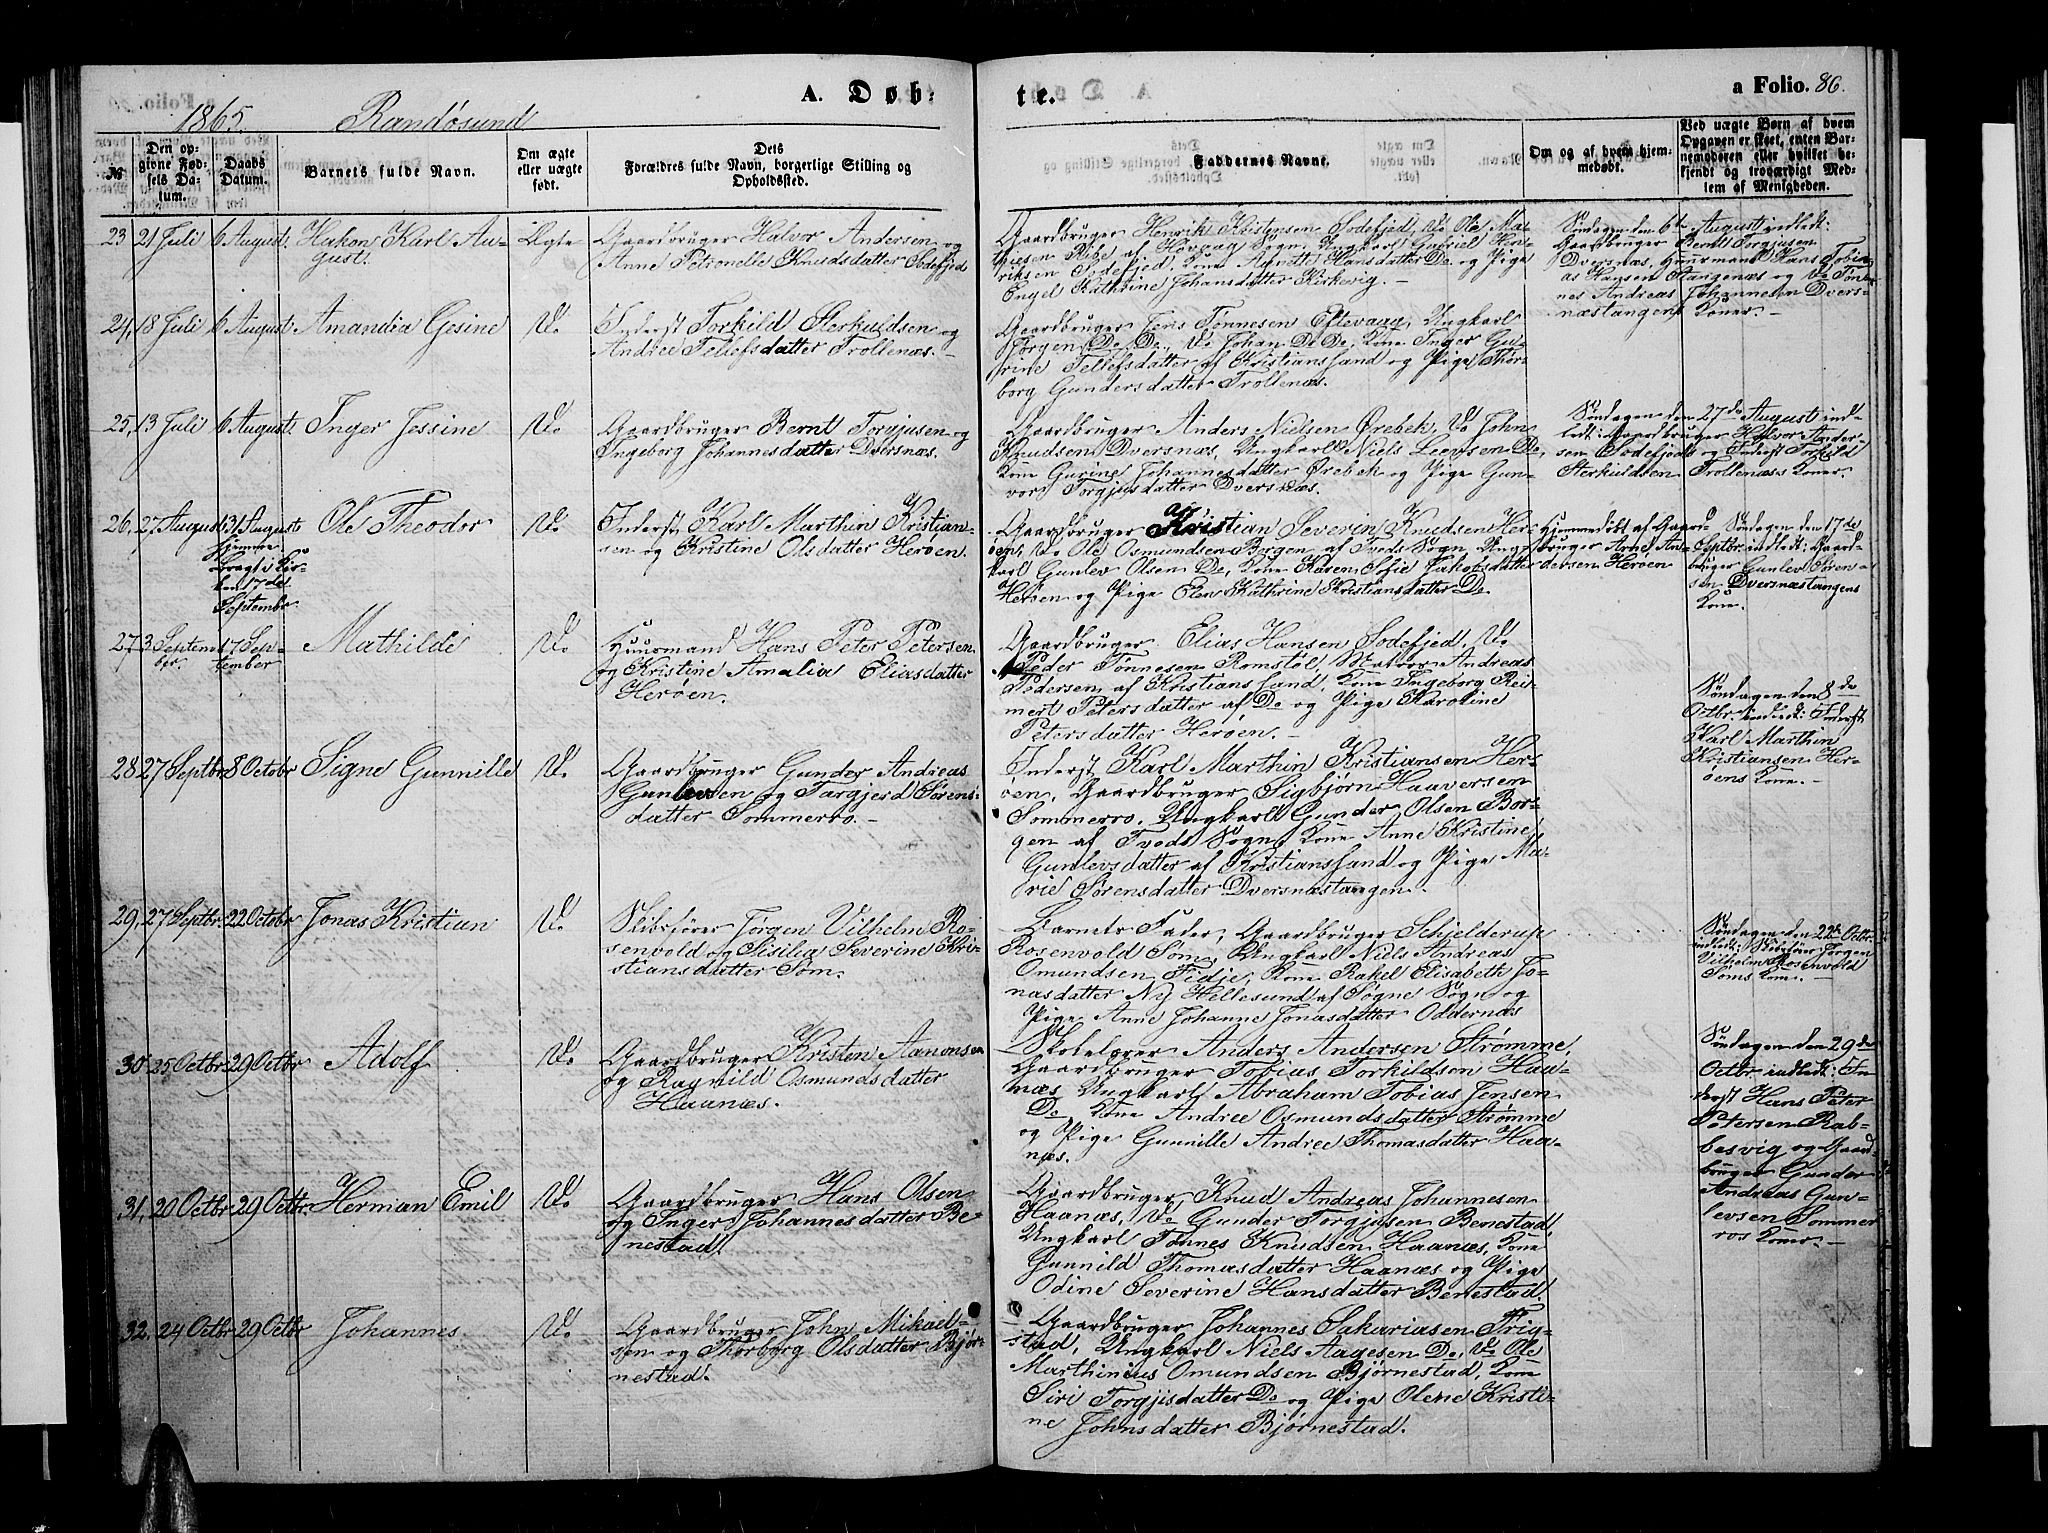 A. Døb-
te.
a Folio. 86.
1865. Randøsund
№
Den op-
givne Fød-
sels Da-
tum.
Daabs
Datum.
Barnets fulde Navn.
Om ægte
eller uægte
født.
Dets
Forældres fulde Navn, borgerlige Stilling og
Opholdssted.
Faddernes Navne.
Om og af hvem hjem-
medøbt.
Ved uægte Børn af hvem
Opgaven er skeet, enten Bar-
nemoderen eller hvilket be-
kjendt og troværdigt Med-
lem af Menigheden.
23 21 Juli 6 August. Hakon Karl Au-
gust.
Ægte
Gaardbruger Halvor Andersen og
Anne Petronelle Knudsdatter Sodefjed
Gaardbruger Henrik Kristensen Sodefjed, Do Ole Ma-
thiesen Ribe af Høvaag Sogn, Ungkarl Gabriel Hen-
riksen Sodefjed, Kone Agnette Hansdatter Do og Pige
Engel Kathrine Johansdatter Kirkevig. -
Søndagen den 6te August indledt:
Gaardbruger Berndt Torgjusen
Dversnæs, Huusmand Hans Tobi-
as Hansen Stangenæs og Do Tøn-
nes Andreas Johannesen Dvers-
næstangens Koner. -
24, 18 Juli 6 August. Amandia Gesine
Do
Inderst Torkild Sterkuldsen og
Andrea Tellefsdatter Trollenæs. -
Gaardbruger Jens Tønnesen Eftevaag, Ungkarl
Jørgen Do Do, Do Johan Do Do, Kone Inger Gu-
rine Tellefsdatter af Kristianssand og Pige Thor-
borg Gundersdatter Trollenæs.
25, 13 Juli 6 August. Inger Jessine
Do
Gaardbruger Bernt Torgjusen og
Ingeborg Johannesdatter Dversnæs.
Gaardbruger Anders Nielsen Ørebek, Do John
Knudsen Dversnæs, Ungkarl Niels Leevsen Do,
Kone Gurine Johannesdatter Ørebek og Pige Gun-
vor Torgjusdatter Dversnæs.
Søndagen den 27de August ind-
ledt: Gaardbruger Halvor Ander-
sen Sodefjeds og Inderst Torkild
Sterkuldsen Trollenæss Koner. -
26, 27 August 31 August Ole Theodor
hjemme
Bragt i Kir-
ken 17 de
September
Do
Inderst Karl Marthin Kristian-
sen og Kristine Olsdatter Herøen.
Gaardbruger Kristian Severin Knudsen Her-
øen, Do Ole Osmundsen Borgen af Tveds Sogn, Ung-
karl Gunlev Olsen Do, Kone Karen Sofie Jakobsdatter
Herøen og Pige Elen Kathrine Kristiansdatter Do
Hjemmedøbt af Gaard-
bruger Arne An-
dersen Herøen
Søndagen den 17de
Septbr. indledt: Gaard-
bruger Gunlev Søren-
sen Dversnæstangens
Kone.
27, 3 Septem-
ber
17 Sep-
tember
Mathilde
Do
Huusmand Hans Peter Petersen
og Kristine Amalia Eliasdatter
Herøen.
Gaardbruger Elias Hansen Sodefjed, Do
Peder Tønnesen Romstøl, Matros Andreas
Pedersen af Kristianssand, Kone Ingeborg Rei-
mert Petersdatter af Do og Pige Karoline
Petersdatter Herøen. -
Søndagen den 8 de
Octbr. indledt: Inderst
Karl Marthin
Kristiansen Her-
øens Kone. -
28, 27 Septbr 8 Octobr Signe Gunnille
Do
Gaardbruger Gunder Andreas
Gunlevsen og Targjerd Sørens-
datter Sommerro. -
Inderst Karl Marthin Kristiansen Her-
øen, Gaardbruger Sigbjørn Haaversen
Sommerro, Ungkarl Gunder Olsen Bor-
gen af Tveds Sogn, Kone Anne Kristine
Gunlevsdatter af Kristianssand og Pige Ma-
rie Sørensdatter Dversnæstangen.
29, 27 Septbr. 22 Octobr Jonas Kristian
Do
Skibsfører Jørgen Vilhelm Ro-
senvold og Sisilia Severine Kri-
stiansdatter Søm.
Barnets Fader, Gaardbruger Schjelderup
Rosenvold Søm, Ungkarl Niels Andreas
Omundsen Fidje, Kone Rakel Elisabeth Jo-
nasdatter Ny Hellesund af Søgne Sogn og
Pige Anne Johanne Jonasdatter Oddernæs
Søndagen den 22de Octbr.
indledt: Skibsfører Jørgen
Vilhelm Rosenvold
Søms Kone. -
30, 25 Octbr. 29 Octbr Adolf
Do
Gaardbruger Kristen Aanonsen
og Ragnild Osmundsdatter
Haanæs.
Skolelærer Anders Andersen Strømme,
Gaardbruger Tobias Torkildsen Haa-
næs, Ungkarl Abraham Tobias Jensen
Do, Kone Andrea Osmundsdatter Strømme
og Pige Gunnille Andrea Thomasdatter Haa-
næs.
Søndagen den 29 de
Octbr indledt: In-
derst Hans Peter
Petersen Rab-
besvig og Gaard-
bruger Gunder
Andreas Gun-
levsen Sommer-
ros Koner. -
31, 20 Octbr. 29 Octbr. Herman Emil
Do
Gaardbruger Hans Olsen
og Inger Johannesdatter Be-
nestad.
Gaardbruger Knud Andreas Johannesen
Haanæs, Do Gunder Torgjusen Benestad,
Ungkarl Tønnes Knudsen Haanæs, Kone
Gunnild Thomasdatter Haanæs og Pige
Odine Severine Hansdatter Benestad.
32, 24 Octbr. 29 Octbr Johannes.
Do
Gaardbruger John Mikael-
sen og Thorborg Olsdatter Bjør-
nestad.
Gaardbruger Johannes Sakariasen Frig-
stad, Ungkarl Niels Aagesen Do, Do Ole
Marthinius Omundsen Bjørnestad, Kone
Siri Torgjisdatter Do og Pige Olene Kristi-
ne Johnsdatter Bjørnestad.